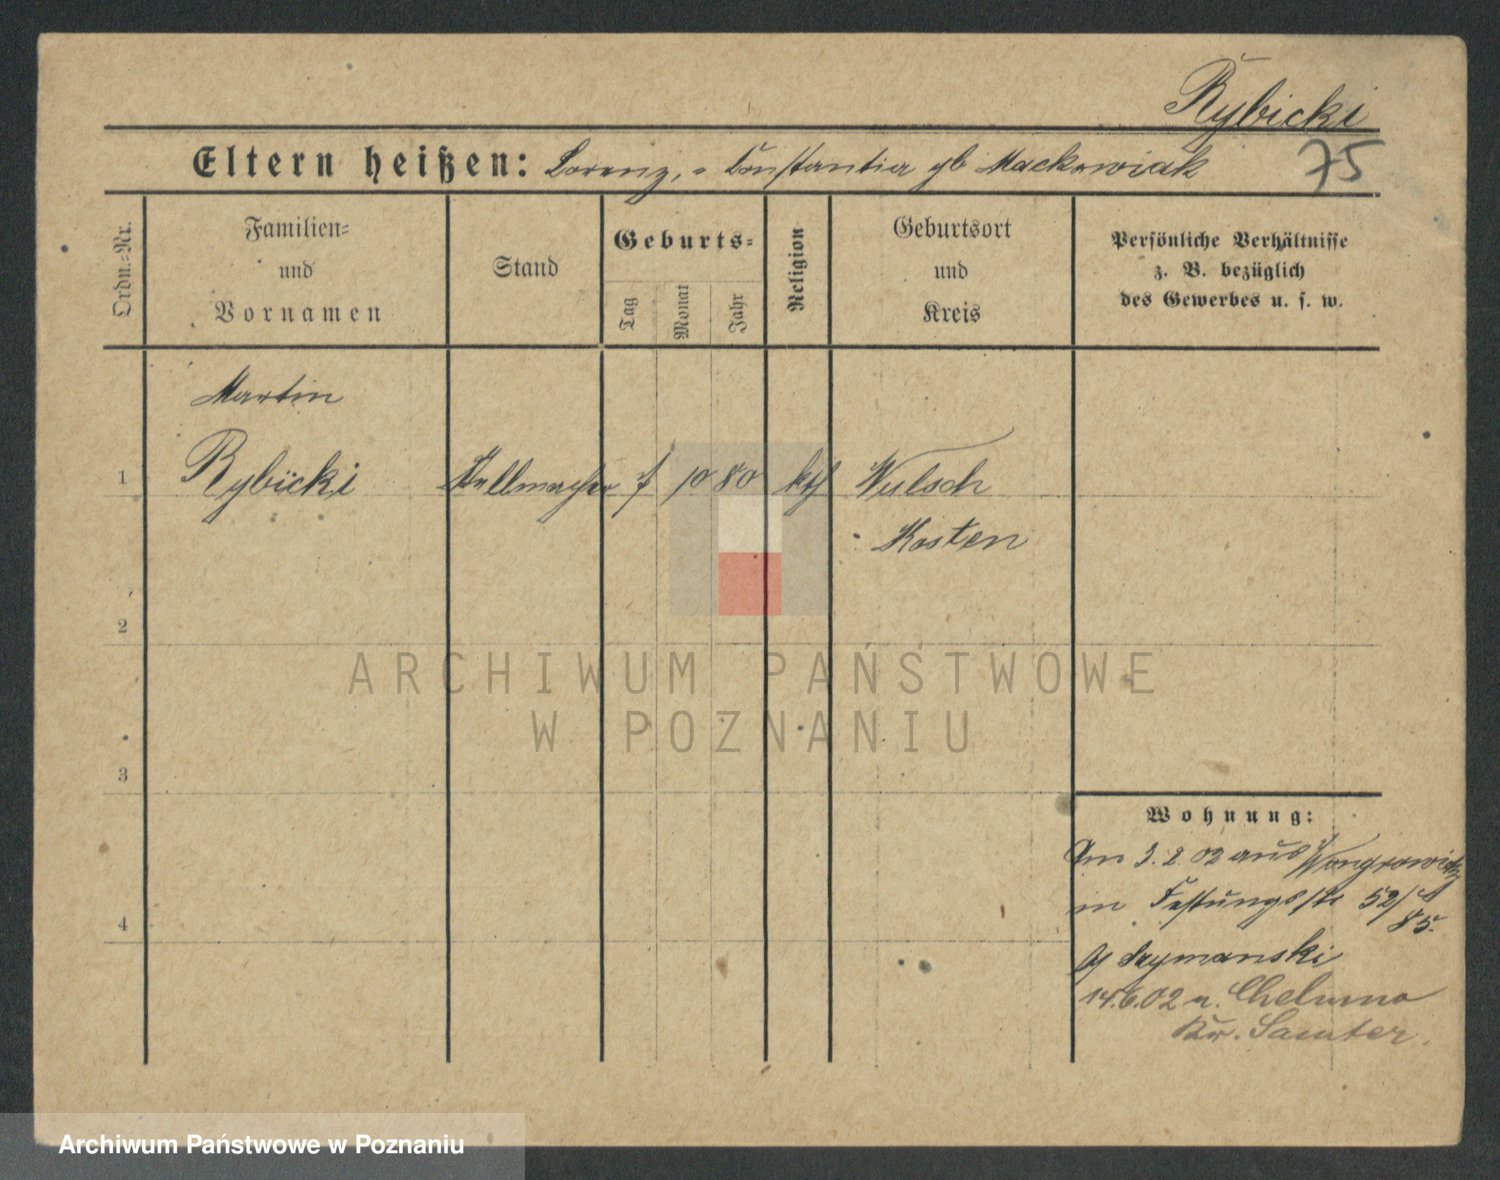 Rybicki
75
Eltern heißen: Lorenz, Constantia gb Mackowiak
Ordn.-Nr.
Familien-
und
Vornamen
Stand
Geburts-
Tag
Monat
Jahr
Religion
Geburtsort
und
Kreis
Persönliche Verhältnisse
z. B. bezüglich
des Gewerbes u. s. w.
Martin
1 Rybicki Stellmacher 10 80 kth Wulsch
Kosten
2
3
4
Wohnung:
Am 3. 2. 02 aus Wongrowitz
in Festungsstr 52/
85.
Szymanski
14.6.02 n. Chelmno
Kr. Samter.
ARCHIWUM PAŃSTWOWE
W POZNANIU
Archiwum Państwowe w Poznaniu